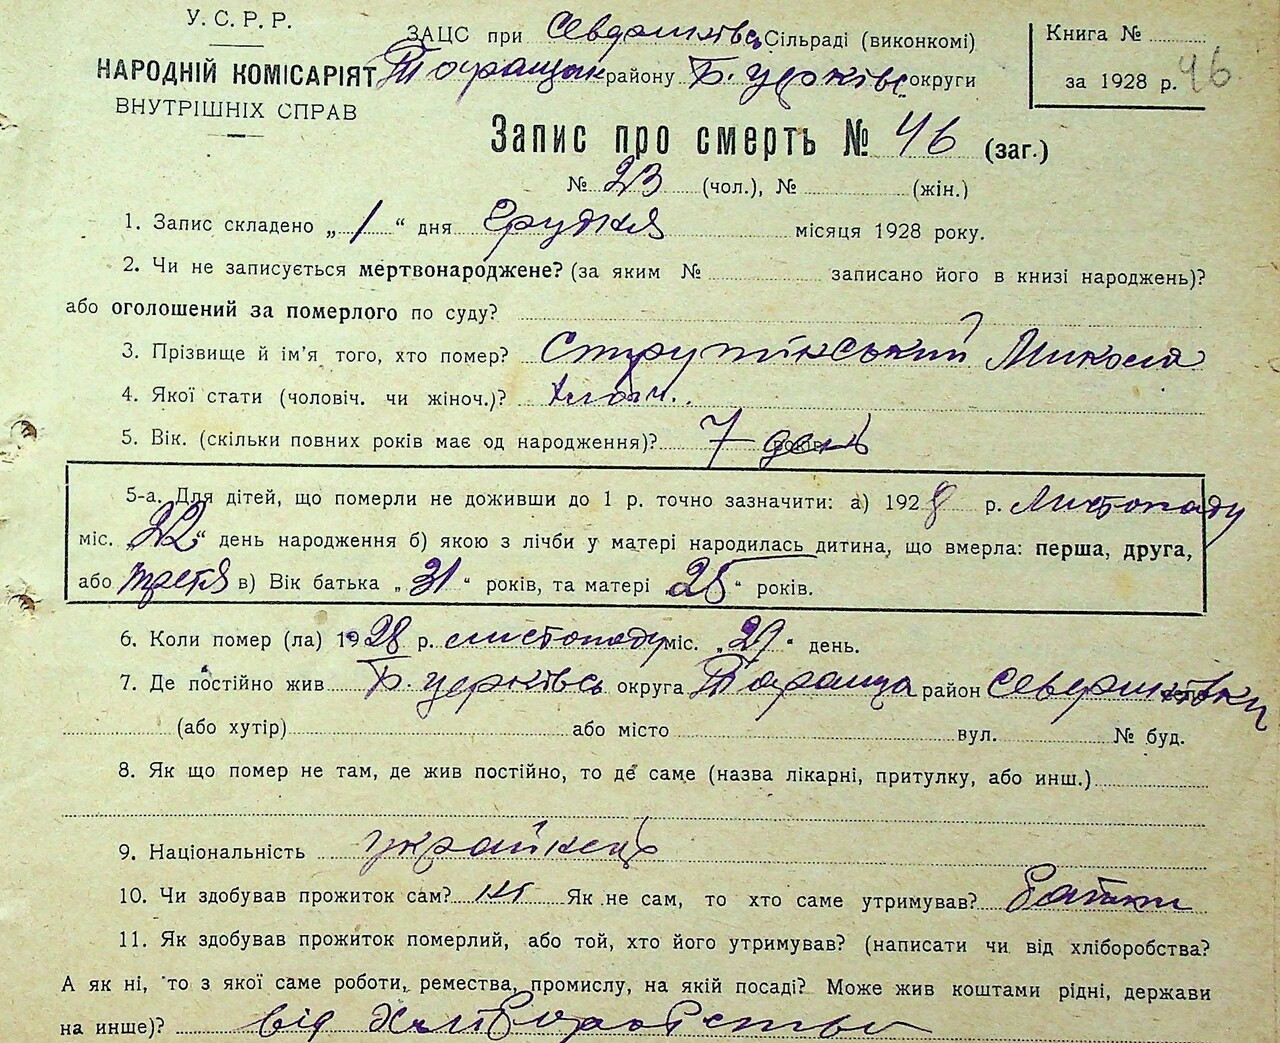 У. С. Р. Р.
НАРОДНІЙ КОМІСАРІЯТ
ВНУТРІШНІХ СПРАВ
ЗАЦС при Сільраді (виконкомі)
Таращан району Б. церківс округи
Книга №
за 1928 р. 46
Запис про смерть № 46 (заг.)
№ 23 (чол.), № (жін.)
1. Запис складено „ 1 “ дня Грудня місяця 1928 року.
2. Чи не записується мертвонароджене? (за яким № записано його в книзі народжень)?
або оголошений за померлого по суду?
3. Прізвище й ім'я того, хто помер? Струтінський Микола
4. Якої стати (чоловіч. чи жіноч.)?
5. Вік. (скільки повних років має од народження)? 7 день
5-а. Для дітей, що померли не доживши до 1 р. точно зазначити: а) 1928 р. Листопаду
міс. „22“ день народження б) якою з лічби у матері народилась дитина, що вмерла: перша, друга,
або третя в) Вік батька „ 31 “ років, та матері 25 “ років.
6. Коли помер (ла) 1928 р. листопаду міс. „29“ день.
7. Де постійно жив Б. церківсь округа Тараща район
(або хутір) або місто вул. № буд.
8. Як що помер не там, де жив постійно, то де саме (назва лікарні, притулку, або инш.)
9. Національність українець
10. Чи здобував прожиток сам? ні Як не сам, то хто саме утримував? батьки
11. Як здобував прожиток померлий, або той, хто його утримував? (написати чи від хліборобства?
А як ні, то з якої саме роботи, ремества, промислу, на якій посаді? Може жив коштами рідні, держави
на инше)? від хліборобства